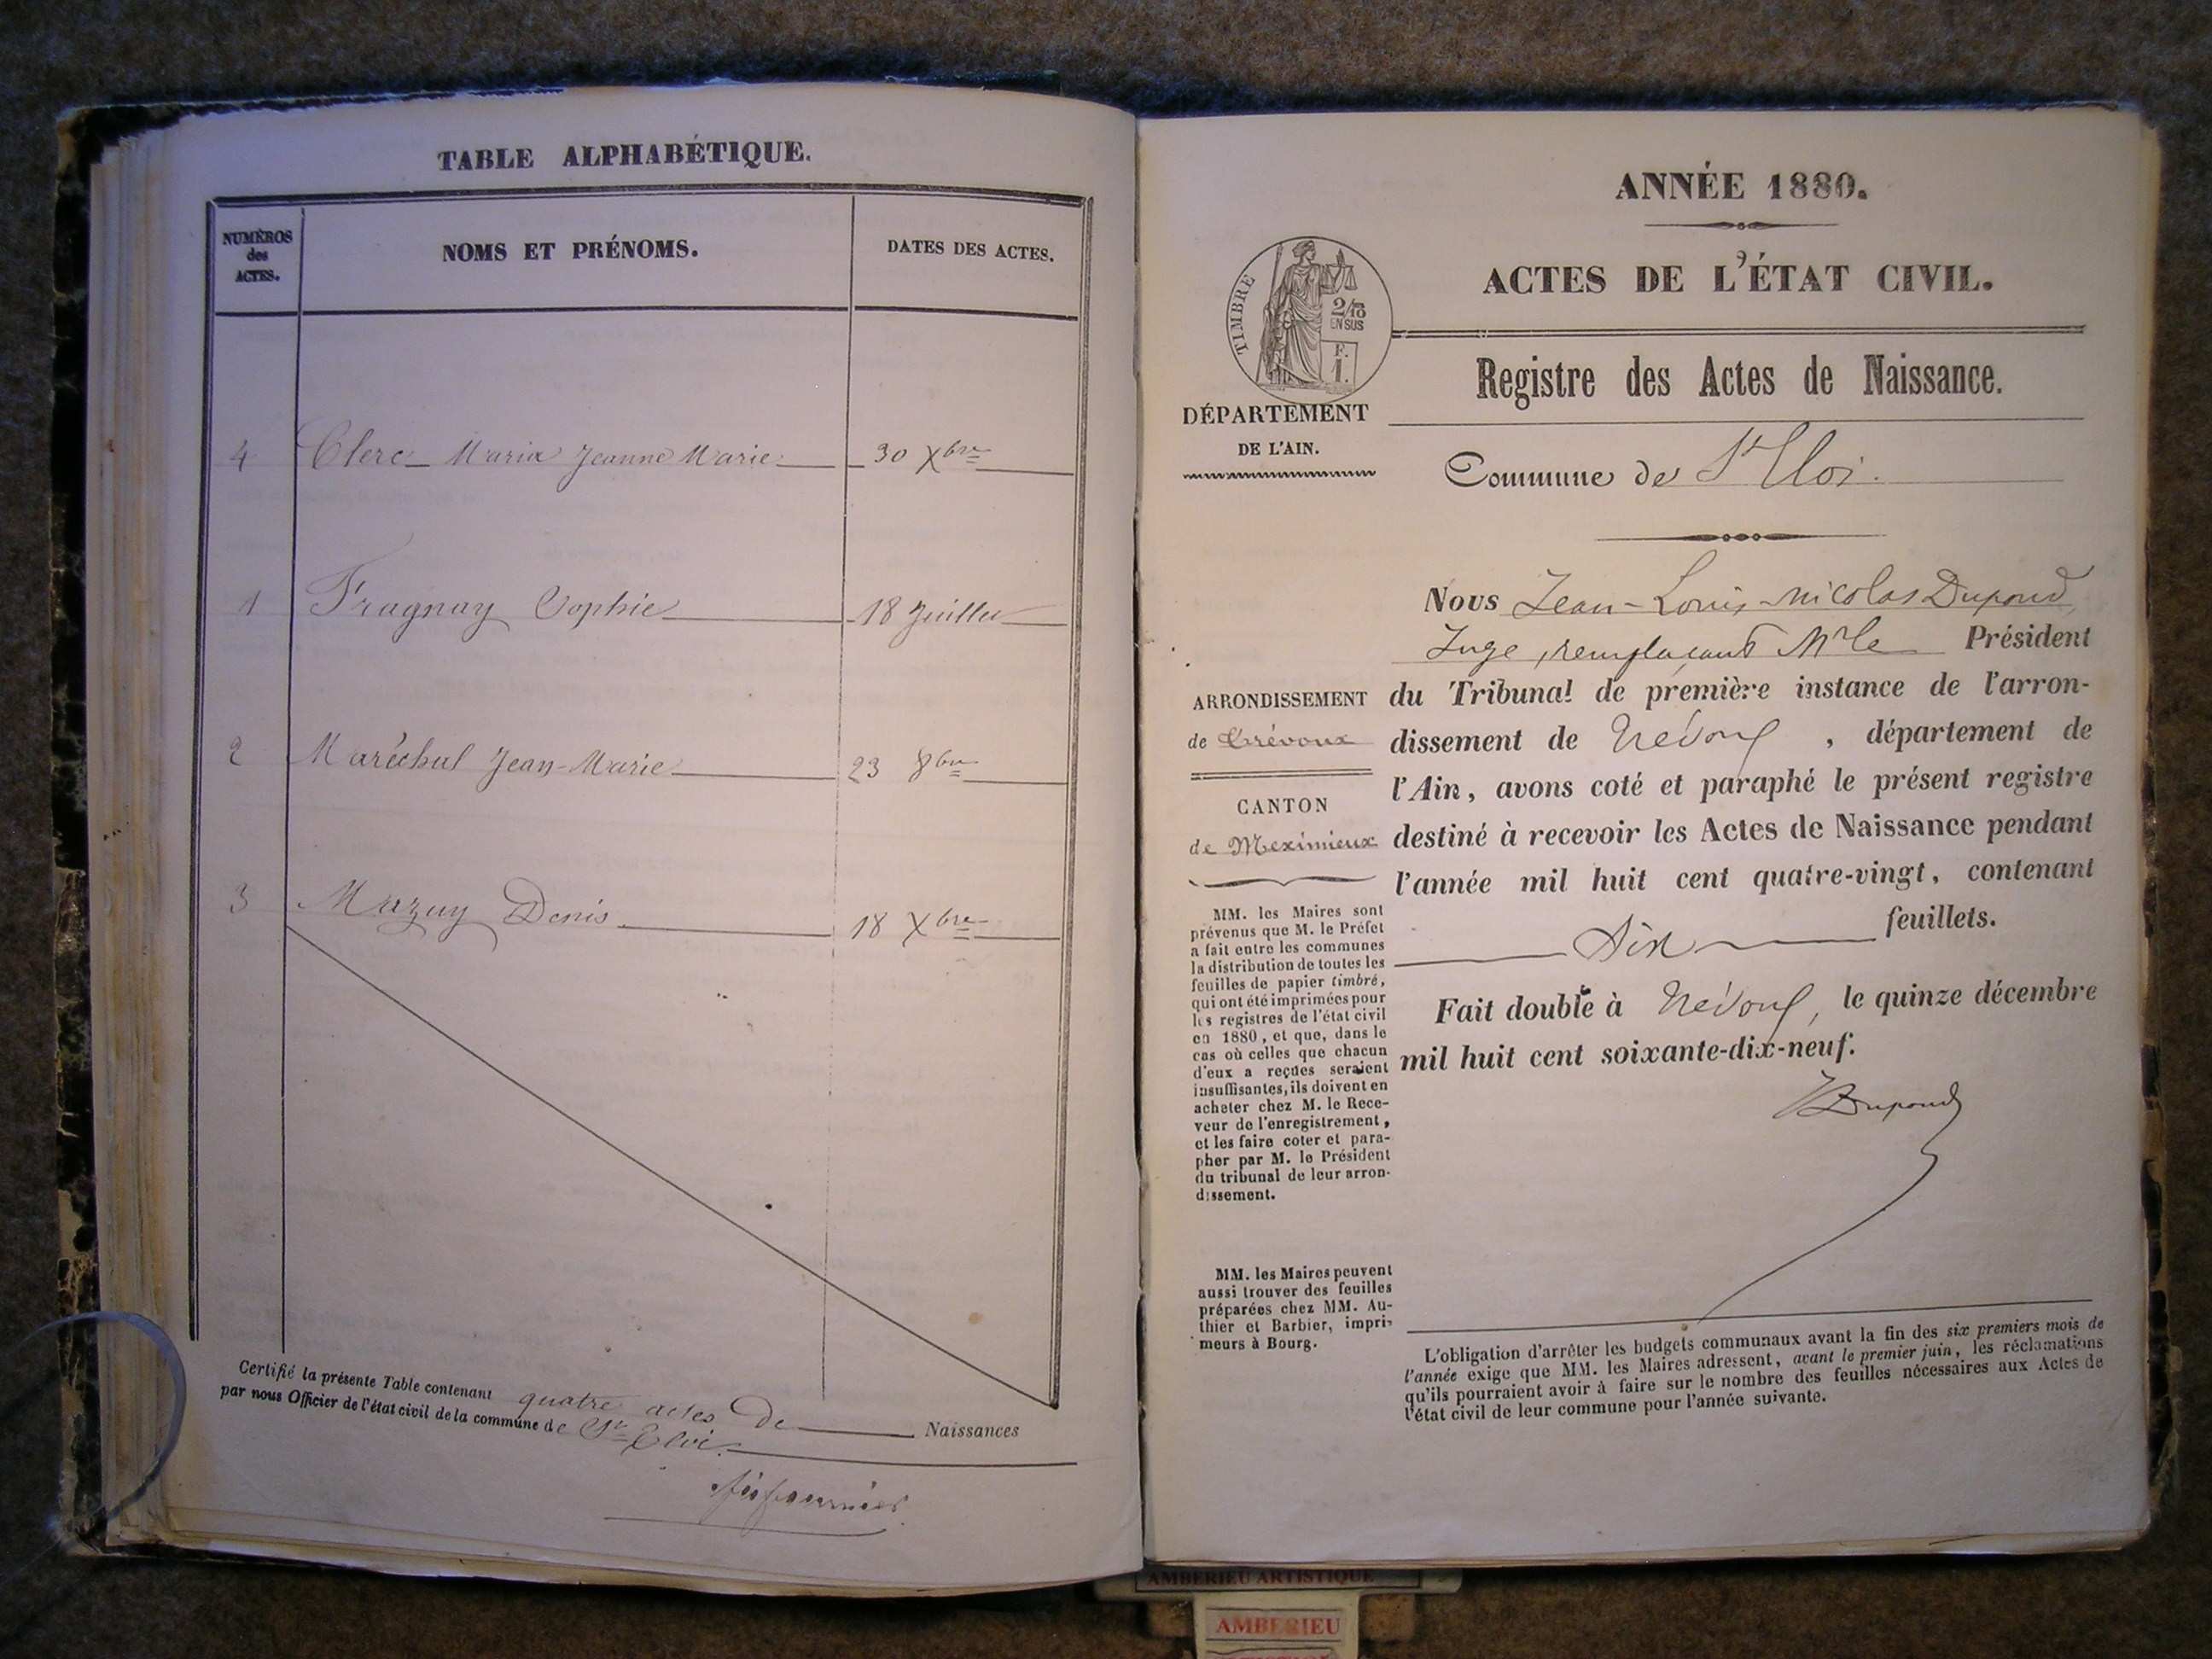 TABLE ALPHABÉTIQUE.
NUMÉROS
des
ACTES.
NOMS ET PRÉNOMS.
DATES DES ACTES.
4 Clerc Maria Jeanne Marie 30 Xbre
1 Fragnay Sophie 18 Juillet
2 Maréchal Jean-Marie 23 8bre
3 Mazuy Denis 18 Xbre
Certifié la présente Table contenant quatre actes de Naissances
par nous Officier de l'état civil de la commune de St Eloi
ANNÉE 1880.
ACTES DE L'ÉTAT CIVIL.
TIMBRE
2/10
EN SUS
F.
1.
Registre des Actes de Naissance.
DÉPARTEMENT
DE L'AIN.
Commune de St Eloi.
Nous Jean-Louis-Nicolas Dupond,
Juge, remplaçant Mr le Président
du Tribunal de première instance de l'arron-
dissement de Trévoux, département de
l'Ain, avons coté et paraphé le présent registre
destiné à recevoir les Actes de Naissance pendant
l'année mil huit cent quatre-vingt, contenant
six feuillets.
Fait double à Trévoux, le quinze décembre
mil huit cent soixante-dix-neuf.
Dupond
ARRONDISSEMENT
de Trévoux
CANTON
de Meximieux
MM. les Maires sont
prévenus que M. le Préfet
a fait entre les communes
la distribution de toutes les
feuilles de papier timbré,
qui ont été imprimées pour
les registres de l'état civil
en 1880, et que, dans le
cas où celles que chacun
d'eux a reçues seraient
insuffisantes, ils doivent en
acheter chez M. le Rece-
veur de l'enregistrement,
et les faire coter et para-
pher par M. le Président
du tribunal de leur arron-
dissement.
MM. les Maires peuvent
aussi trouver des feuilles
préparées chez MM. Au-
thier et Barbier, impri-
meurs à Bourg.
L'obligation d'arrêter les budgets communaux avant la fin des six premiers mois de
l'année exige que MM. les Maires adressent, avant le premier juin, les réclamations
qu'ils pourraient avoir à faire sur le nombre des feuilles nécessaires aux Actes de
l'état civil de leur commune pour l'année suivante.
AMBERIEU ARTISTIQUE
AMBERIEU